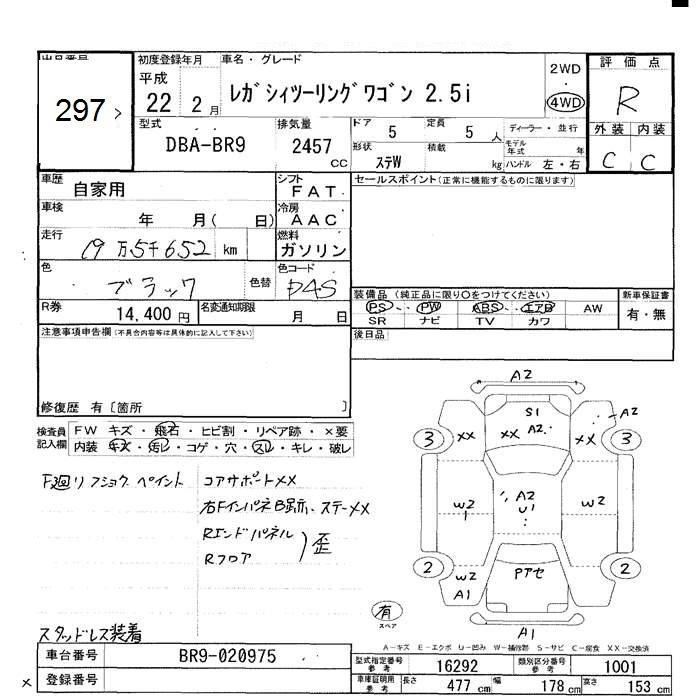 出品番号
297 >
初度登録年月
平成
22 2 月
車名・グレード
レガシィツーリングワゴン 2.5i
2WD
・
4WD
評価点
R
型式
DBA-BR9
排気量
2457
CC
ドア
5
定員
5 人
ディーラー・並行
外装 内装
C C
形状
ステW
積載
kg
モデル年式 年
ハンドル 左・右
車歴
自家用
シフト
FAT
セールスポイント(正常に機能するものに限ります)
車検
年 月( 日)
冷房
AAC
走行
19万5千652 km
燃料
ガソリン
色
ブラック
色替
色コード
D4S
R券
14,400 円
名変通知期限
月 日
装備品 (純正品に限り○をつけてください)
PS・ PW ABS・ エアB AW
SR ナビ TV カワ
新車保証書
有・無
注意事項申告欄(不具合内容等は具体的に記入して下さい)
後日品
修復歴 有〔箇所 〕
検査員記入欄
FW キズ・飛石・ヒビ割・リペア跡・×要
内装 キズ・汚レ・コゲ・穴・スレ・キレ・破レ
F廻リフショク ペイント
コアサポートXX
右FインパネB跡、ステーXX
Rエンドパネル
Rフロア
歪
スタッドレス装着
A2
S1
A2
3 XX XX A2 XX 3
W2 A2 W2
1 U1
2 W2 2
A1 Pアセ
有
スペア
A1
A-キズ E-エクボ U-凹み W-補修跡 S-サビ C-腐食 XX-交換済
車台番号
BR9-020975
型式指定番号
参考
16292
類別区分番号
参考
1001
登録番号
車庫証明用
参考
長さ 477 cm
幅 178 cm
高さ 153 cm
×